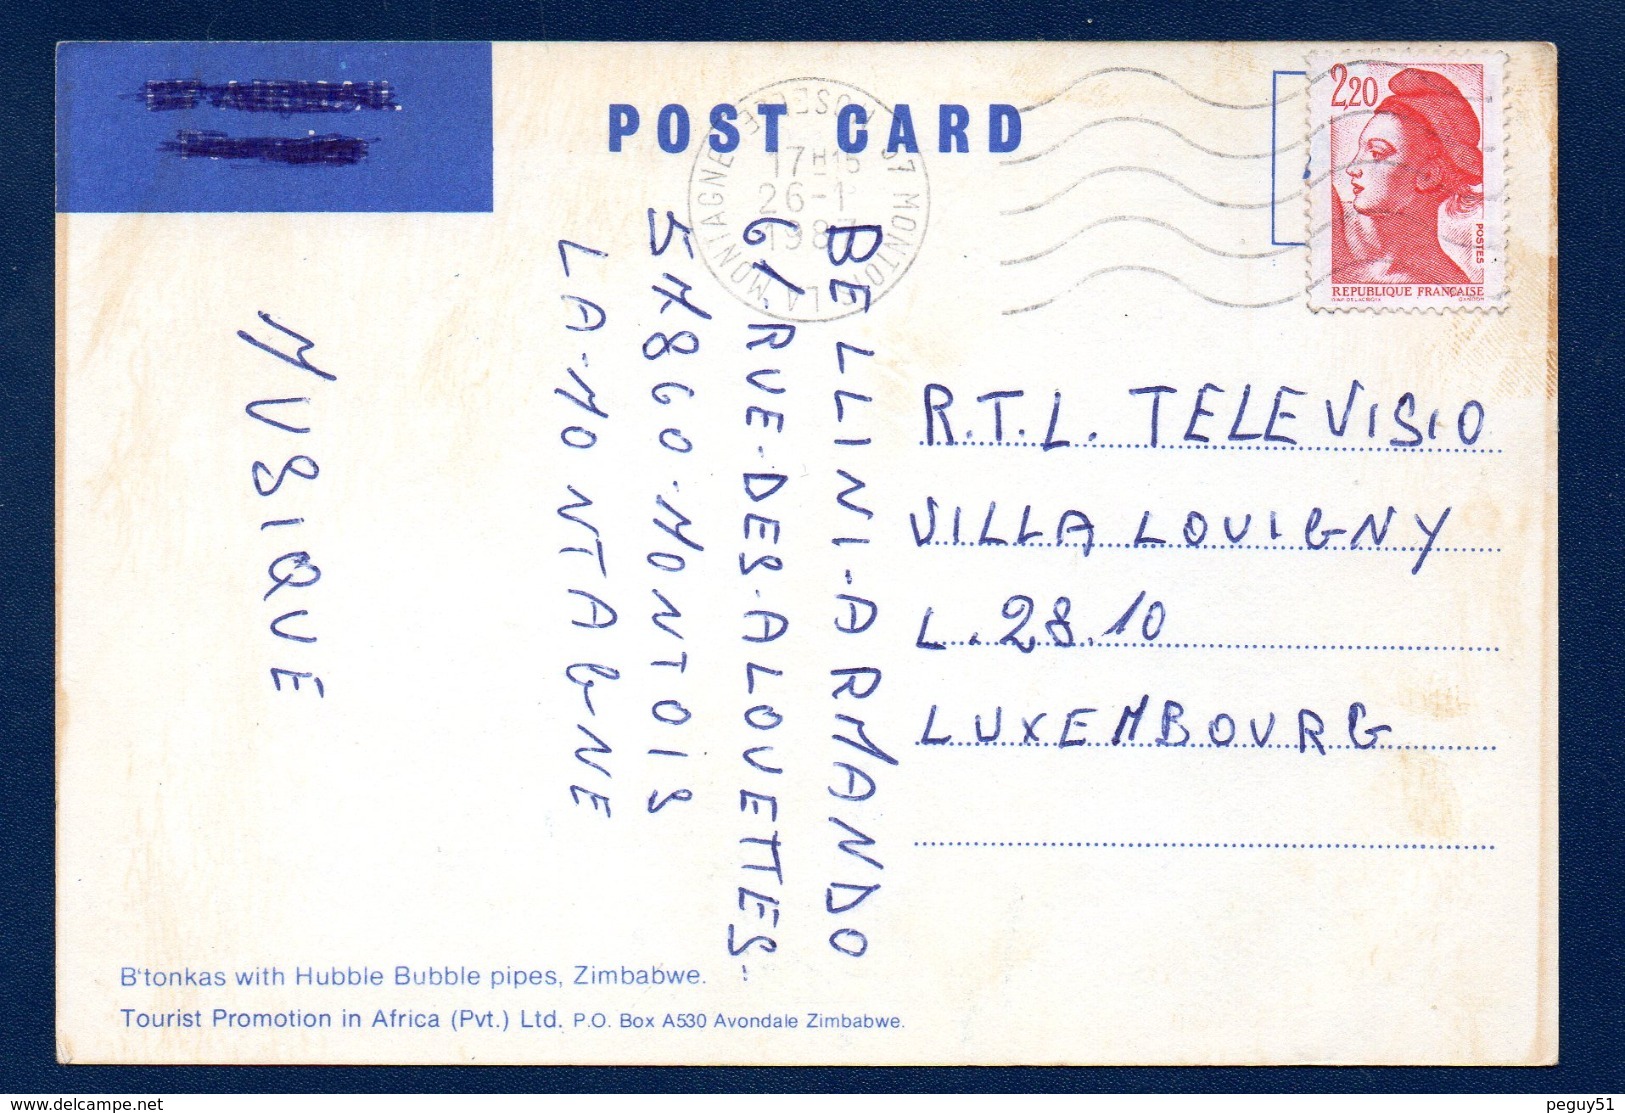 POST CARD
17H15
26-1
1987
2,20
POSTES
REPUBLIQUE FRANÇAISE
GANDON
R.T.L. TELEVISIO
VILLA LOUIGNY
L. 28.10
LUXEMBOURG
BELLINI-ARMANDO
61. RUE-DES-ALOUETTES-
54860-MONTOIS
LA-MONTAGNE
MUSIQUE
B'tonkas with Hubble Bubble pipes, Zimbabwe.
Tourist Promotion in Africa (Pvt.) Ltd. P.O. Box A530 Avondale Zimbabwe.
http://www.delcampe.net
peguy51